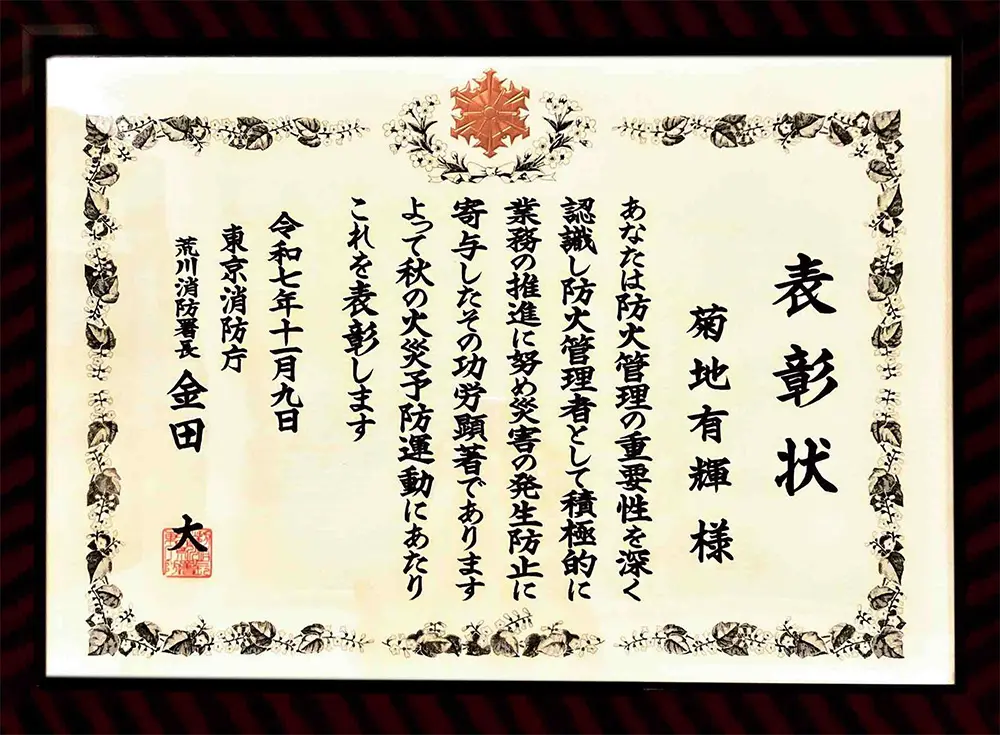 表彰状
菊地有輝様
あなたは防火管理の重要性を深く
認識し防火管理者として積極的に
業務の推進に努め災害の発生防止に
寄与したその功労顕著であります
よって秋の火災予防運動にあたり
これを表彰します
令和七年十一月九日
東京消防庁
荒川消防署長 金田 大